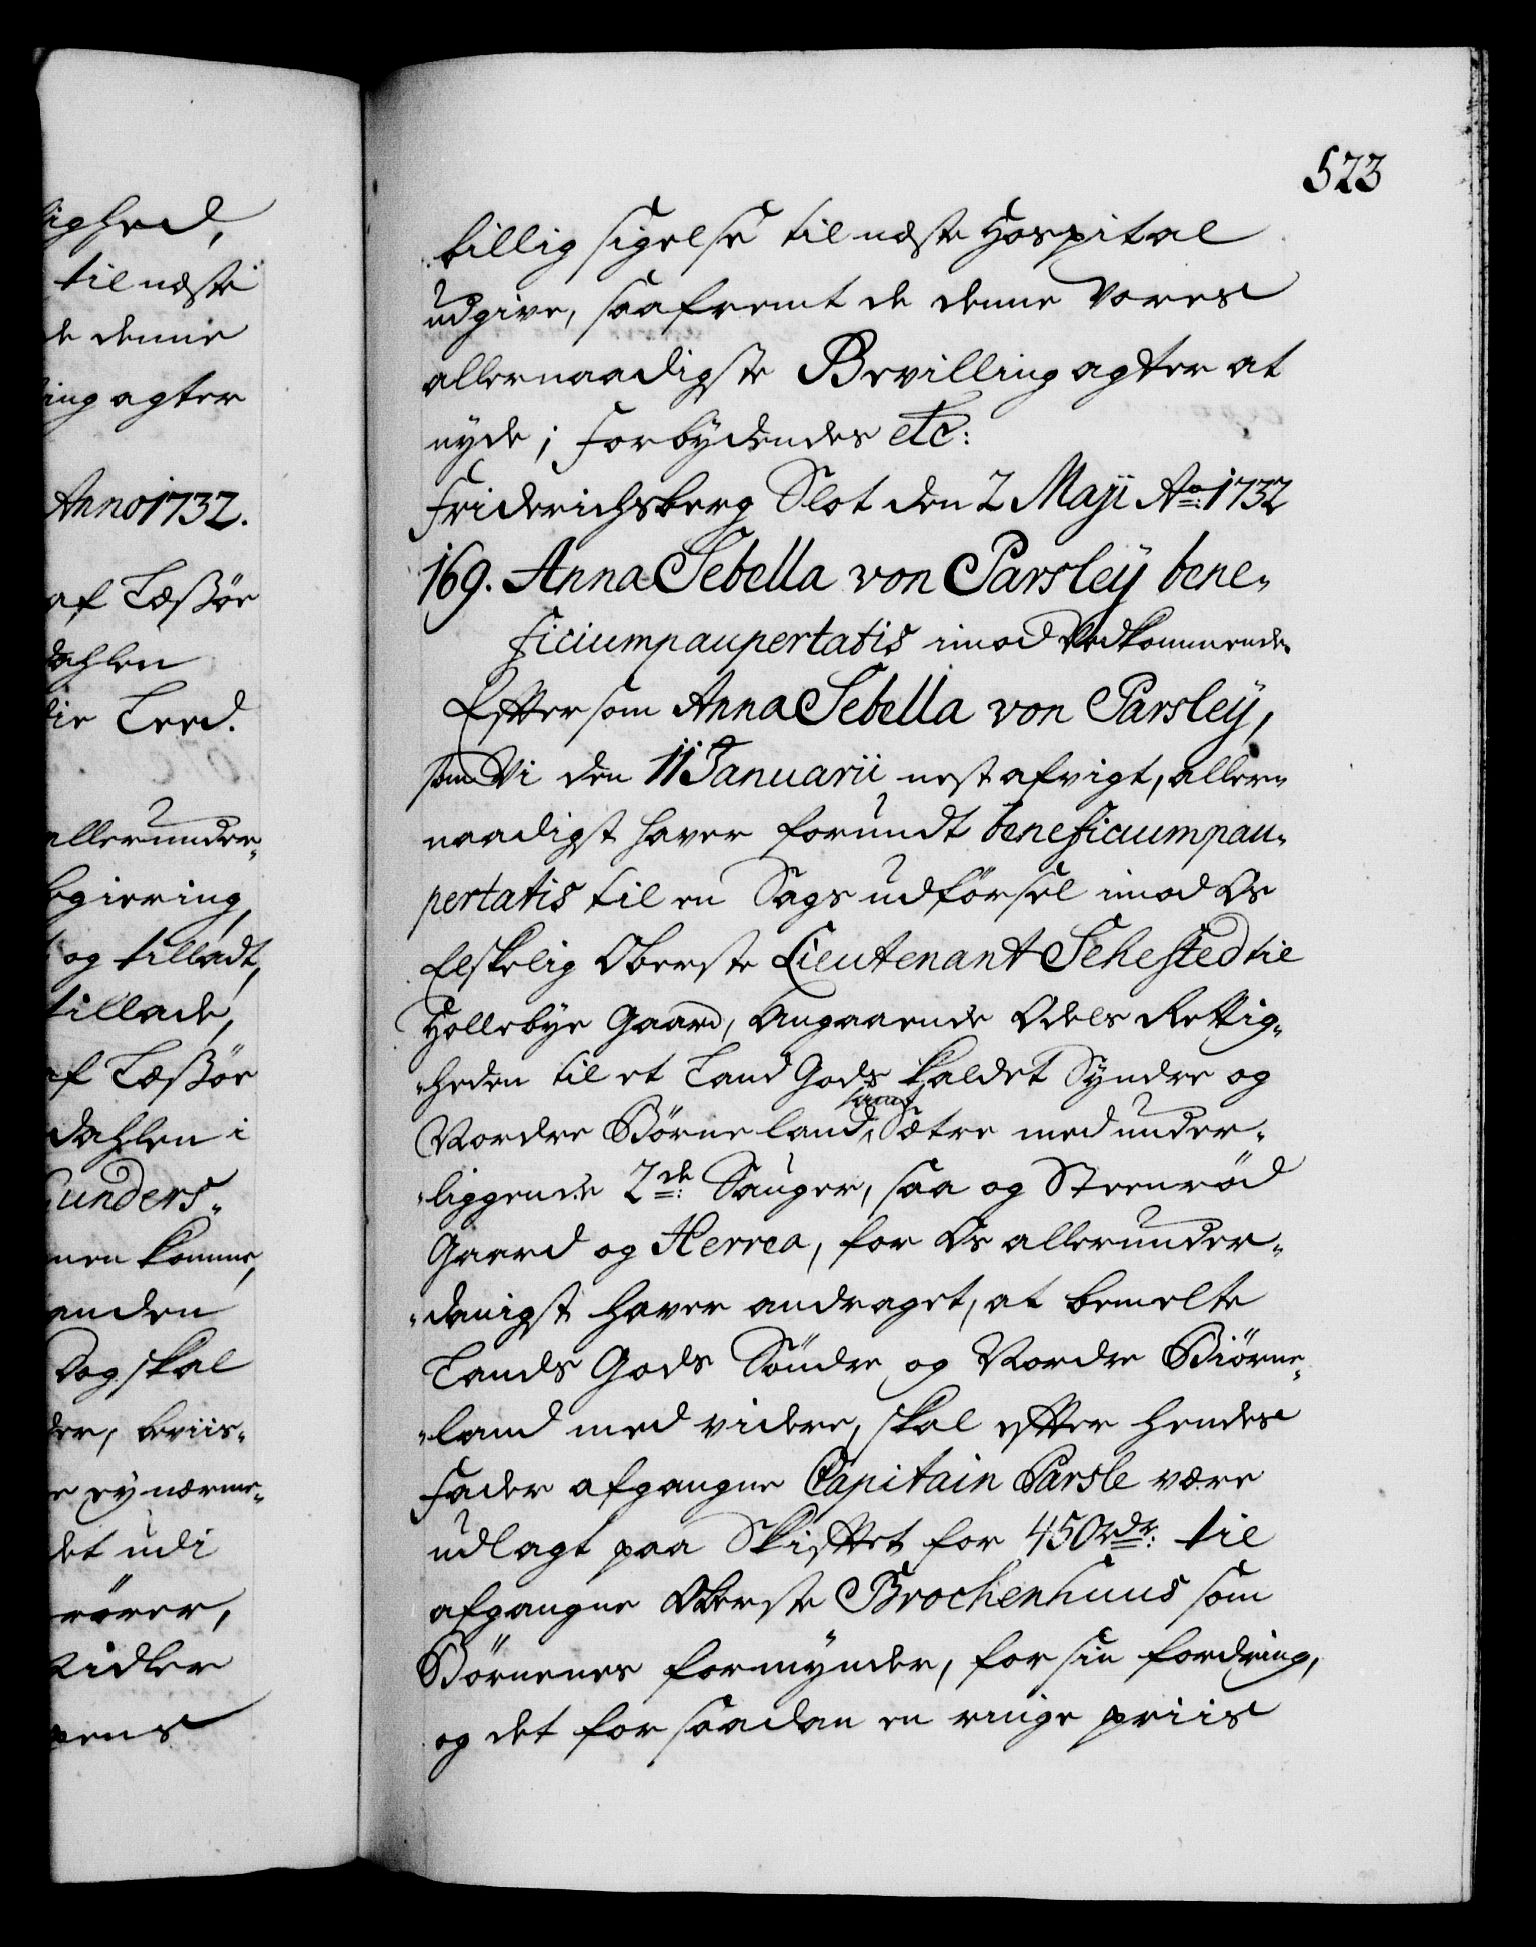 lighed,
til næste
de denne
ing agter
Anno 1732.
af Læssøe
dahlen
lie Leed.
allerunder-
regiering,
og tilladt,
tillade,
af Læssøe
dahlen i
Gunders-
men komme,
anden
Dog skal
der, beviis-
e ey nærme-
det udi
rører,
Kidler
pens
523
billig sigelse til næste Hospital
udgive, saafremt de denne Vores
allernaadigste Bevilling agter at
nyde; Forbydendes etc:
Friderichsberg Slot den 2 Maji Ao 1732
169. Anna Sebella von Parsley bene-
ficium paupertatis imod Vedkommende.
Eftersom Anna Sebella von Parsley,
som Vi den 11 Januarii nestafvigt, aller-
naadigst haver forundt beneficium pau-
pertatis til en Sags udførsel imod Os
Elskelig Oberste Lieutenant Sehested til
Hollebye Gaard, Angaaende Odels Rettig-
-heden til et Land Gods kaldet Syndre og
samt
Nordre Børneland, Sætre med under-
-liggende 2de: Sauger, saa og Steenrød
Gaard og Herrea, for Os allerunder-
-danigst haver andraget, at bemelte
Lands Gods Søndre og Nordre Biørne-
-land med videre, skal efter hendes
Fader afgangne Capitain Parsle være
udlagt paa Skiftet for 450 rdr: til
afgangne Oberste Brochenhuus som
Børnenes formynder, for sin fordring,
og det for saadan en ringe priis